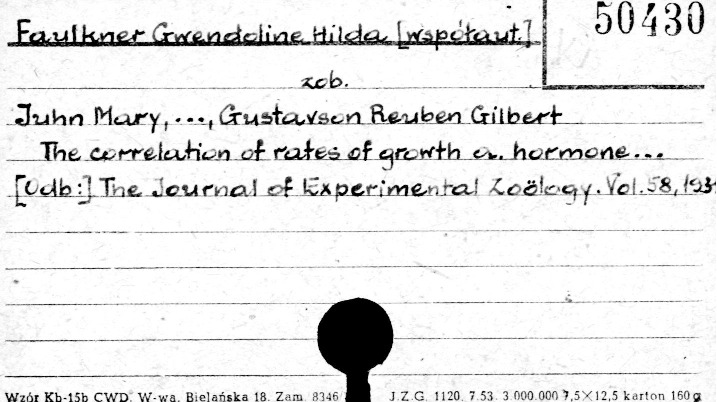 50430
Faulkner Gwendoline Hilda [współaut.]
zob.
Juhn Mary, ..., Gustavson Reuben Gilbert
The correlation of rates of growth a. hormone...
[Odb:] The Journal of Experimental Zoölogy. Vol. 58, 1931
Wzór Kb-15b CWD. W-wa, Bielańska 18. Zam. 8346 J.Z.G. 1120. 7.53. 3.000.000 7,5×12,5 karton 160 g